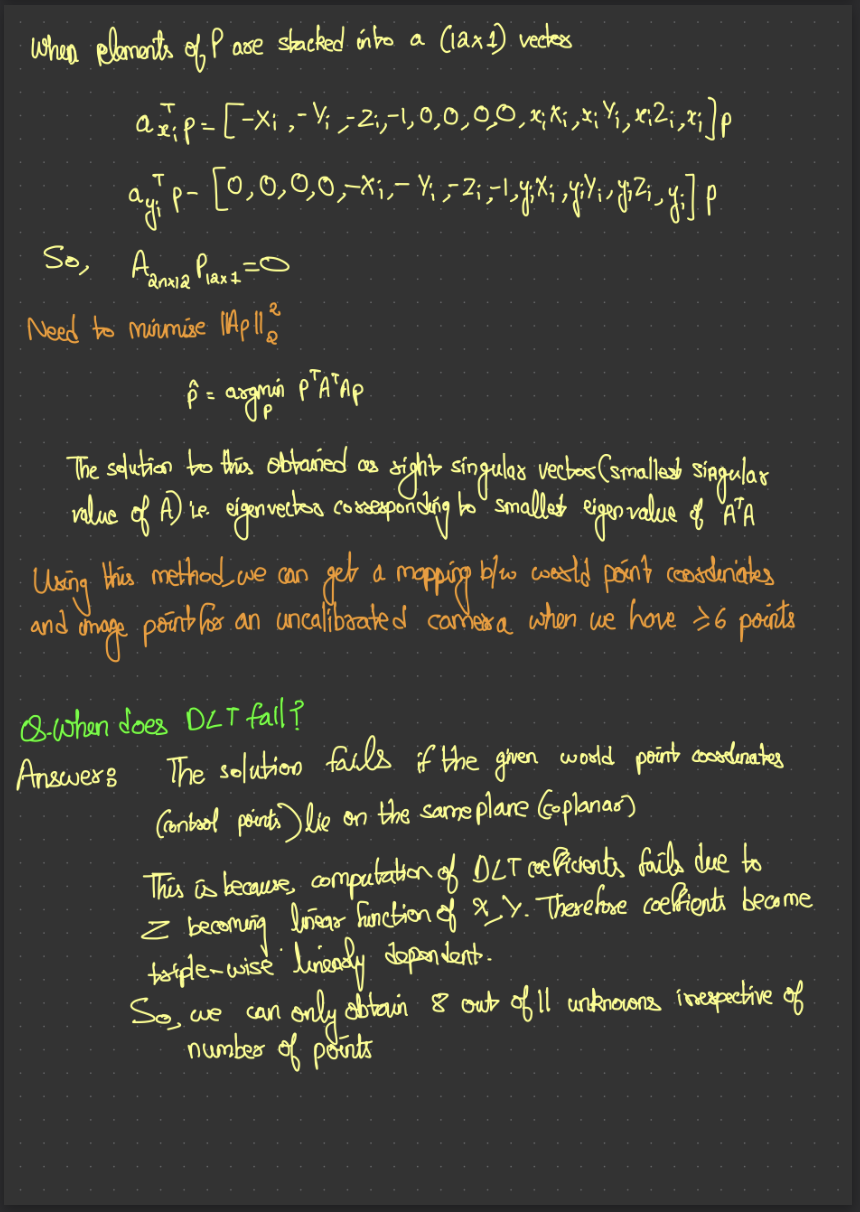 When elements of P are stacked into a (12x1) vector
a_{x_i}^T p = [-X_i, -Y_i, -Z_i, -1, 0, 0, 0, 0, x_iX_i, x_iY_i, x_iZ_i, x_i] p
a_{y_i}^T p - [0, 0, 0, 0, -X_i, -Y_i, -Z_i, -1, y_iX_i, y_iY_i, y_iZ_i, y_i] p
So, A_{2nx12} P_{12x1} = 0
Need to minimise ||Ap||_2^2
p̂ = argmin_p p^T A^T A p
The solution to this obtained as right singular vector (smallest singular
value of A) i.e. eigenvector corresponding to smallest eigenvalue of A^T A
Using this method, we can get a mapping b/w world point coordinates
and image point for an uncalibrated camera when we have ≥6 points
Q. When does DLT fail?
Answer: The solution fails if the given world point coordinates
(control points) lie on the same plane (coplanar)
This is because, computation of DLT coefficients fails due to
Z becoming linear function of X, Y. Therefore coefficients become
triple-wise linearly dependent.
So, we can only obtain 8 out of 11 unknowns irrespective of
number of points